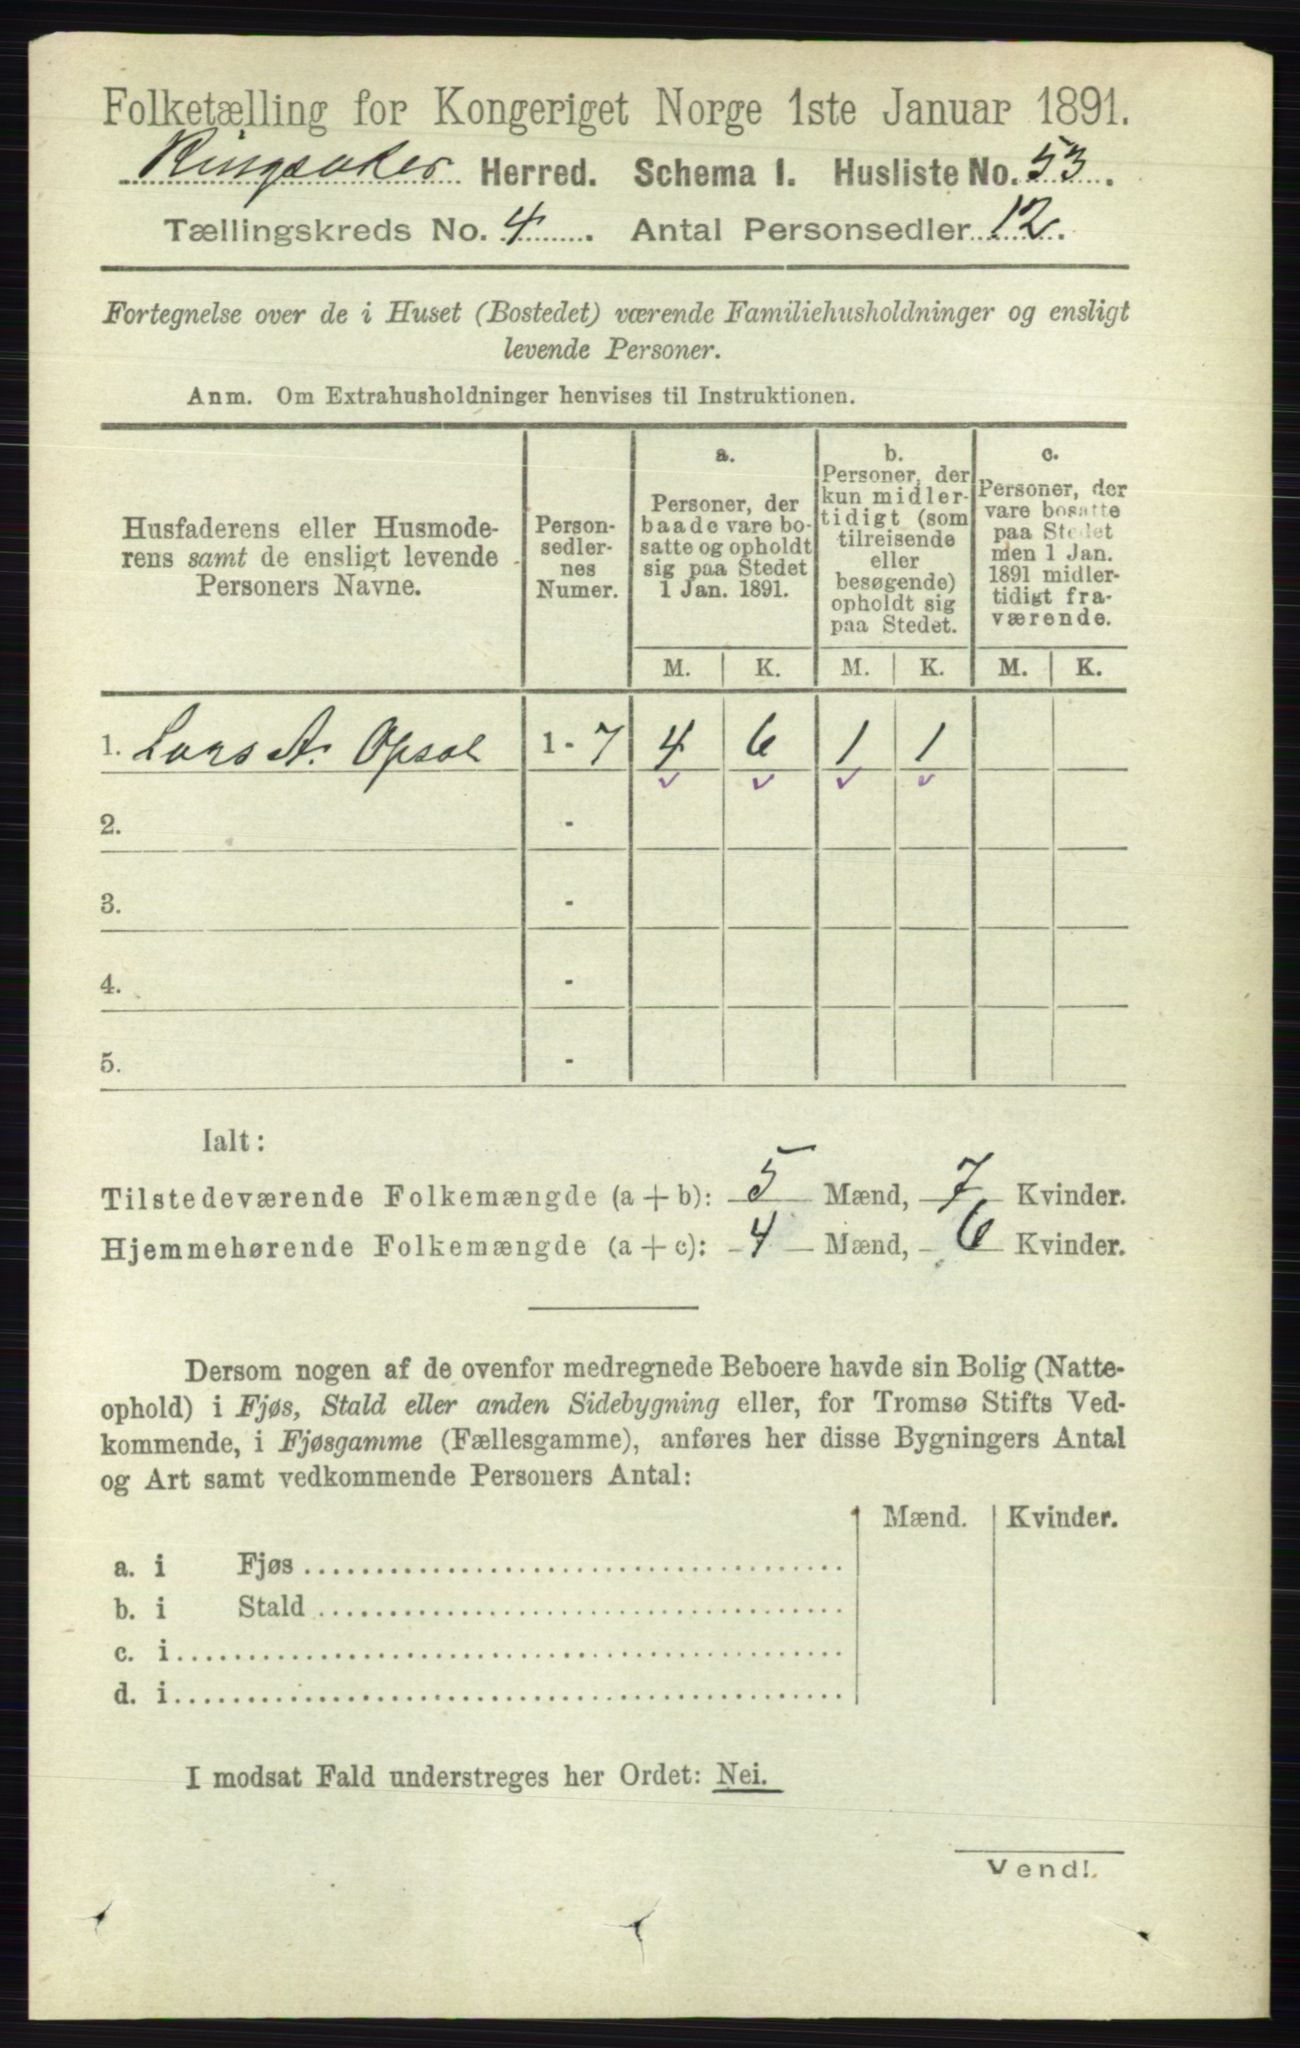 Folketælling for Kongeriget Norge 1ste Januar 1891.
Ringsaker Herred. Schema I. Husliste No. 53.
Tællingskreds No. 4. Antal Personsedler 12.
Fortegnelse over de i Huset (Bostedet) værende Familiehusholdninger og ensligt
levende Personer.
Anm. Om Extrahusholdninger henvises til Instruktionen.
Husfaderens eller Husmode-
rens samt de ensligt levende
Personers Navne.
Person-
sedler-
nes
Numer.
a.
Personer, der
baade vare bo-
satte og opholdt
sig paa Stedet
1 Jan. 1891.
b.
Personer, der
kun midler-
tidigt (som
tilreisende
eller
besøgende)
opholdt sig
paa Stedet.
c.
Personer, der
vare bosatte
paa Stedet
men 1 Jan.
1891 midler-
tidigt fra-
værende.
M. K. M. K. M. K.
1. Lars A. Opsal 1 - 7 4 6 1 1
2. -
3. -
4. -
5. -
Ialt:
Tilstedeværende Folkemængde (a + b): 5 Mænd, 7 Kvinder.
Hjemmehørende Folkemængde (a + c): 4 Mænd, 6 Kvinder.
Dersom nogen af de ovenfor medregnede Beboere havde sin Bolig (Natte-
ophold) i Fjøs, Stald eller anden Sidebygning eller, for Tromsø Stifts Ved-
kommende, i Fjøsgamme (Fællesgamme), anføres her disse Bygningers Antal
og Art samt vedkommende Personers Antal:
Mænd. Kvinder.
a. i Fjøs
b. i Stald
c. i
d. i
I modsat Fald understreges her Ordet: Nei.
Vend!.